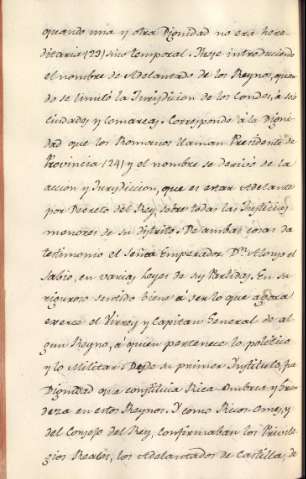 quando una y otra Dignidad no era here
ditaria (23) sino temporal. Fuese introduciendo
el nombre de Adelantado de los Reynos, quan
do se limitó la Jurisdicion de los Condes, á sus
Ciudades y Comarcas. Corresponde á la Digni
dad que los Romanos llaman Presidente de
Provincia (24) y el nombre se derivó de la
accion y Jurysdiccion, que es estar Adelante
por Decreto del Rey sobre todas las Justicias
menores de su distrito. De ambas cosas da
testimonio el Señor Emperador Dn. Alonso el
Sabio, en varias Leyes de sus Partidas. En su
riguroso sentido biene á ser lo que agora
exerce el Virrey y Capitan General de al
gun Reyno, á quien pertenece lo politico
y lo Militar. Desde su primer Instituto, fue
Dignidad que constituia Rica Ombria y Gran
deza en estos Reynos. Y como Ricos Omes, y
del Consejo del Rey, confirmaban los Privile
gios Reales, los Adelantados de Castilla, de